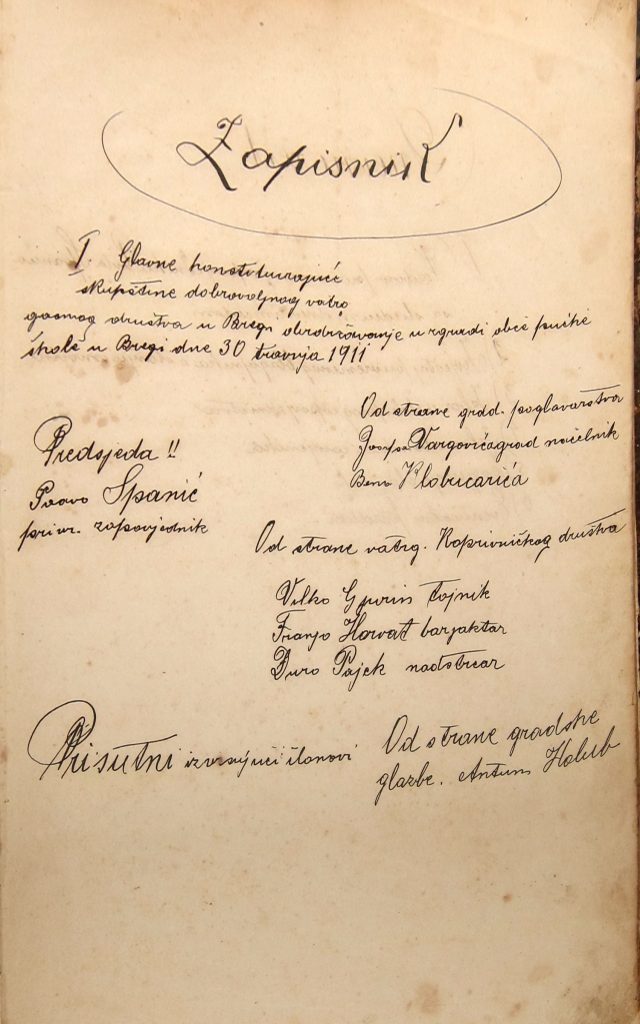 Zapisnik
I. Glavne konstituirajuće
skupštine dobrovoljnog vatro
gasnog društva u Bregi obdržavanje u zgradi obće pučke
škole u Bregi dne 30 travnja 1911
Predsjeda !!
Pavao Španić
priv. zapovjednik
Od strane grad. poglavarstva
Josipa Vargovića grad načelnik
Bena Klobučarića
Od strane vatrg. Koprivničkog društva
Vilko Gjurin tajnik
Franjo Horvat barjaktar
Đuro Pajek nadstrcar
Prisutni izvršujući članovi
Od strane gradske
glazbe. Antun Holub